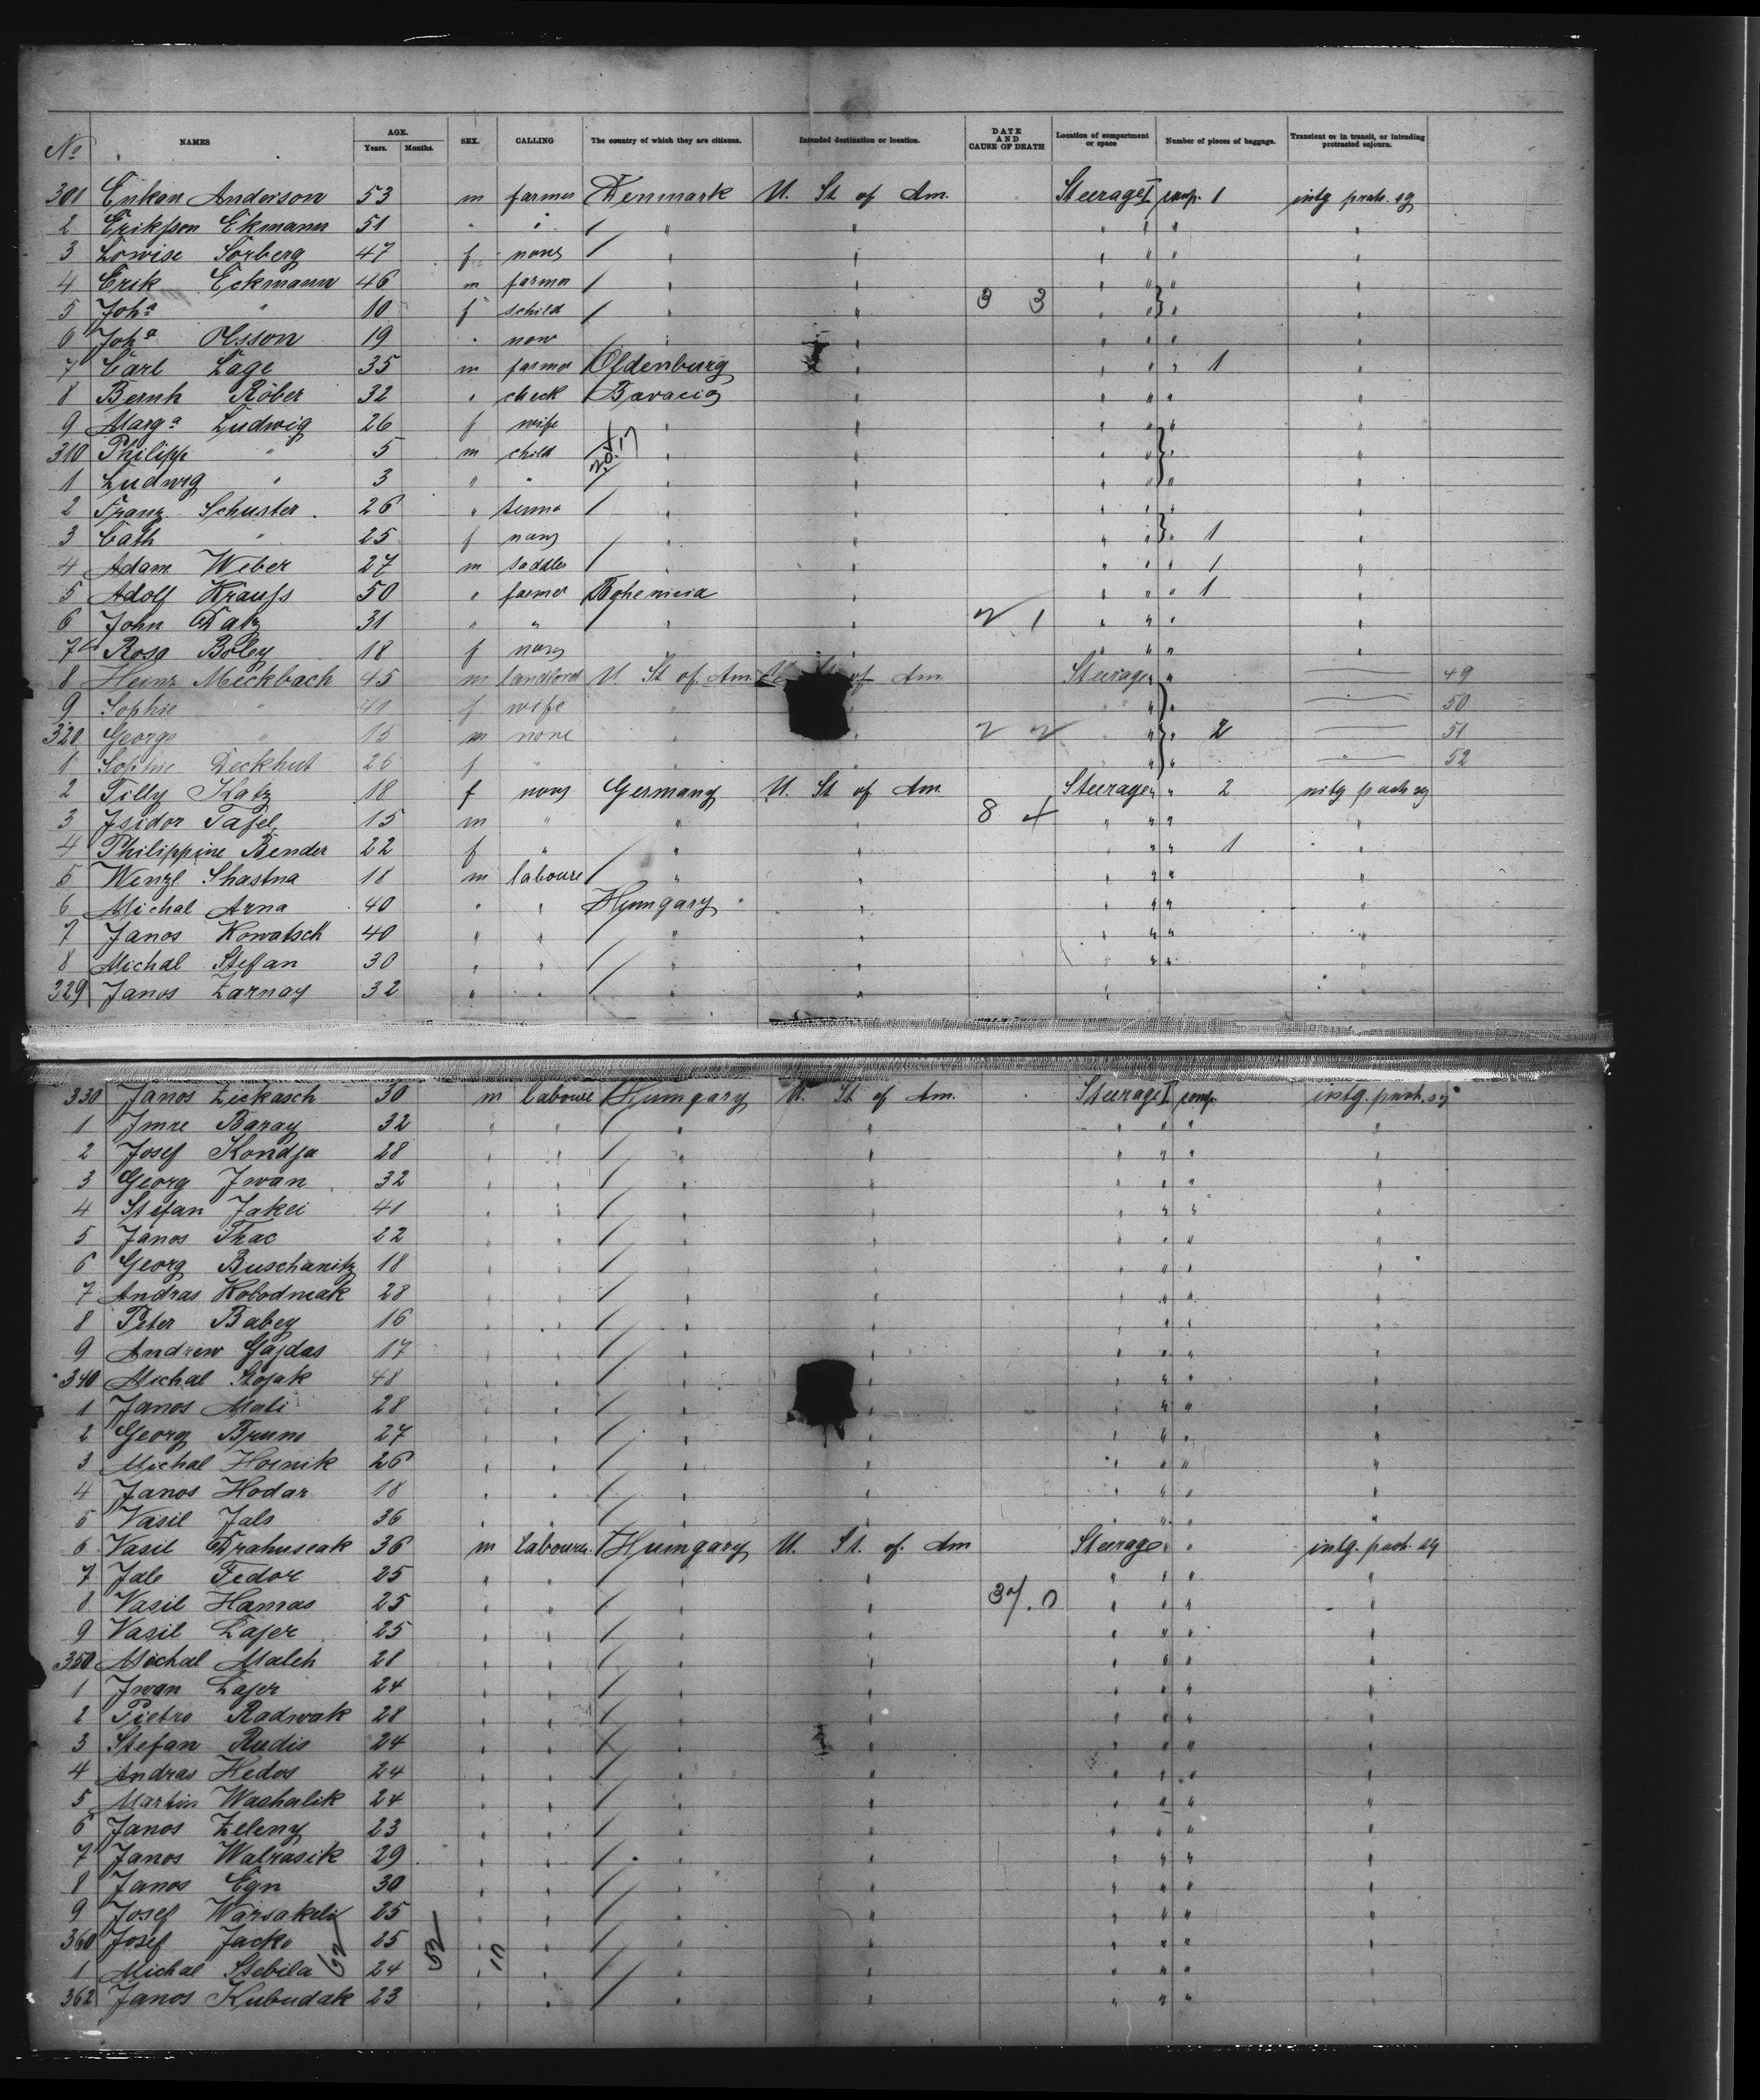 No NAMES AGE. Years. Months. SEX. CALLING The country of which they are citizens. Intended destination or location. DATE AND CAUSE OF DEATH Location of compartment or space Number of pieces of baggage. Transient or in transit, or intending protracted sojourn.
301 Anderson 53 m farmer Denmark U. St of Am. Steerage I comp. 1 intg
2 Erikson Ekmann 51 " " " " " " " "
3 Lowise Sorberg 47 f none " " " " " "
4 Erik Eckmann 46 m farmer " " " " " "
5 Joha " 10 f schild " " 3 3 " " " "
6 Joha Olsson 19 " " " " " " "
7 Carl Lage 35 m farmer Oldenburg " " " " 1 "
8 Bernh Röber 32 " Bavaria " " " " "
9 Marga Ludwig 26 f wife " " " " " "
310 Philipp " 5 m child " " " " " "
1 Ludwig " 3 " " " " " " " "
2 Franz Schuster 26 " " " " " " "
3 Cath " 25 f none " " " " " 1 "
4 Adam Weber 27 m saddler " " " " " 1 "
5 Adolf Krauss 50 " farmer Bohemia " " " " 1 "
6 John 31 " " " " 2 1 " " " "
7 Rosa Boley 18 f none " " " " " "
8 Heinr Meckbach 45 m landlord U St of Am. of Am. Steerage " " 49
9 Sophie " 41 f wife " " " " 50
320 George " 15 m none " " 2 2 " " 2 51
1 Sophie Deckhut 26 f " " " " " 52
2 Tilly Katz 18 f none Germany U. St of Am. Steerage " " 2 intg
3 Isidor Tafel 15 m " " " 8 4 " " " "
4 Philippine Bender 22 f " " " " " 1 "
5 Wenzl Shastna 18 m laboure " " " " "
6 Michal Arna 40 " " Hungary " " " " "
7 Janos Kowatsch 40 " " " " " " " "
8 Michal Stefan 30 " " " " " " "
329 Janos Zarnay 32 " " " " " "
330 Janos Zickasch 30 m laboure Hungary U. St of Am. Steerage I comp. intg.
1 Imre Baray 32 " " " " " " " "
2 Josef Kondja 28 " " " " " " " "
3 Georg Iwan 32 " " " " " " " "
4 Stefan Jakei 41 " " " " " " " "
5 Janos Thac 22 " " " " " " " "
6 Georg Buschanitz 18 " " " " " " " "
7 Andras Kolodniak 28 " " " " " " " "
8 Peter Babey 16 " " " " " " " "
9 Andrew Gajdas 17 " " " " " " " "
340 Michal Stojak 48 " " " " " " " "
1 Janos Mati 28 " " " " " " " "
2 Georg 27 " " " " " " " "
3 Michal Hornik 26 " " " " " " " "
4 Janos Hodar 18 " " " " " " " "
5 Vasil Jals 36 " " " " " " " "
6 Vasil 36 m laboure Hungary U. St. of Am Steerage " " intg.
7 Fedor 25 " " " " " " " "
8 Vasil Hamas 25 " " " " 37.0 " " " "
9 Vasil Lajer 25 " " " " " " " "
350 Michal Maleh 28 " " " " " " " "
1 Iwan Lajer 24 " " " " " " " "
2 Pietro Radwak 28 " " " " " " " "
3 Stefan Rudis 24 " " " " " " " "
4 Andras Hedos 24 " " " " " " " "
5 Martin Wachalik 24 " " " " " " " "
6 Janos Zeleny 23 " " " " " " " "
7 Janos Walrasik 29 " " " " " " " "
8 Janos Egn 30 " " " " " " " "
9 Josef 25 " " " " " " " "
360 Josef Jacko 25 " " " " " " " "
1 Michal Stebila 24 " " " " " " " "
362 Janos Kubudak 23 " " " " " " " "